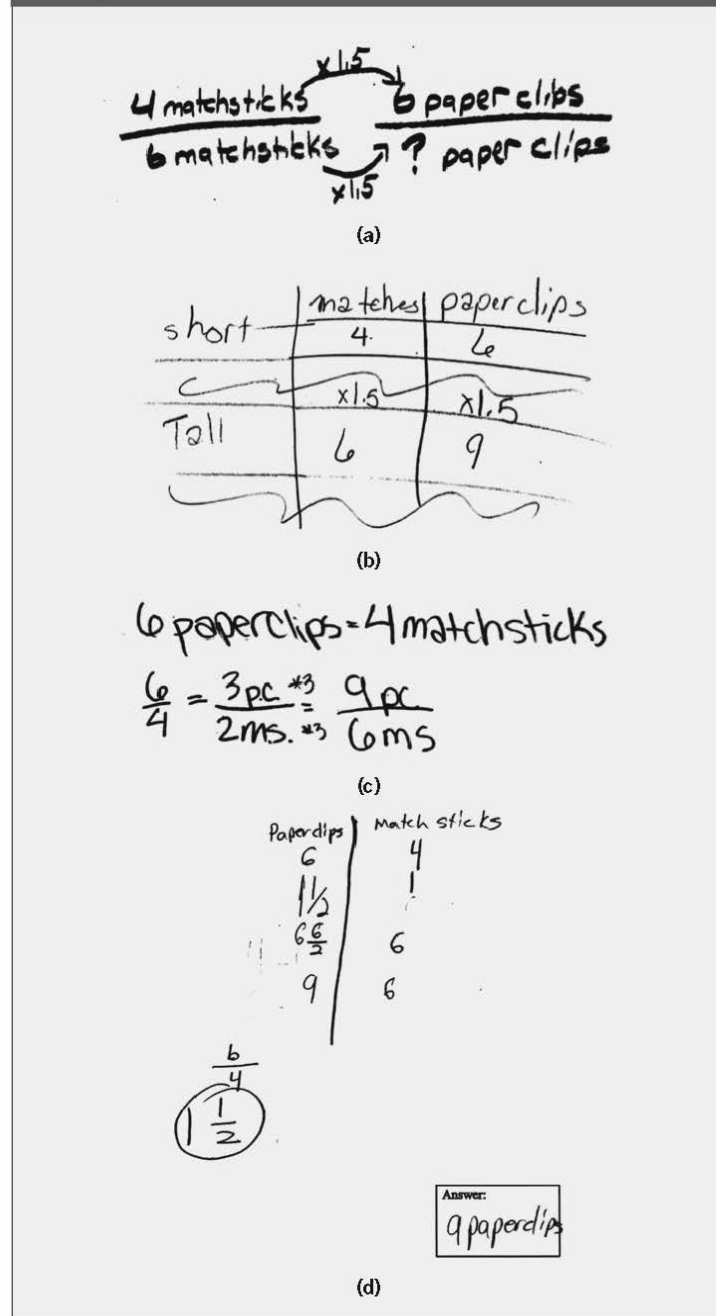 x1.5
4 matchsticks 6 paper clips
6 matchsticks ? paper clips
x1.5
(a)
matches paperclips
short 4. 6
x1.5 x1.5
Tall 6 9
(b)
6 paperclips = 4 matchsticks
6/4 = 3 p.c. *3 / 2 ms. *3 = 9 pc / 6 ms
(c)
Paperclips Match sticks
6 4
1 1/2 1
6 6/2 6
9 6
6/4
1 1/2
Answer:
9 paperclips
(d)